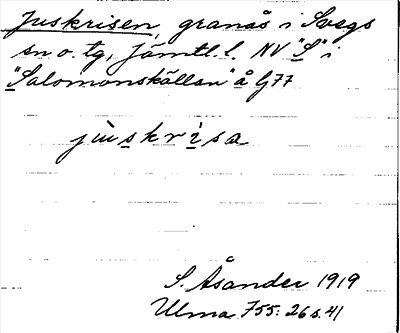 Juskrisen, granås i Svegs
sn o. tg, Jämtl. l. NV "S" i
"Salomonskällan" å G77
jùskrisa
S. Åsander 1919
Ulma 755: 26 s. 41